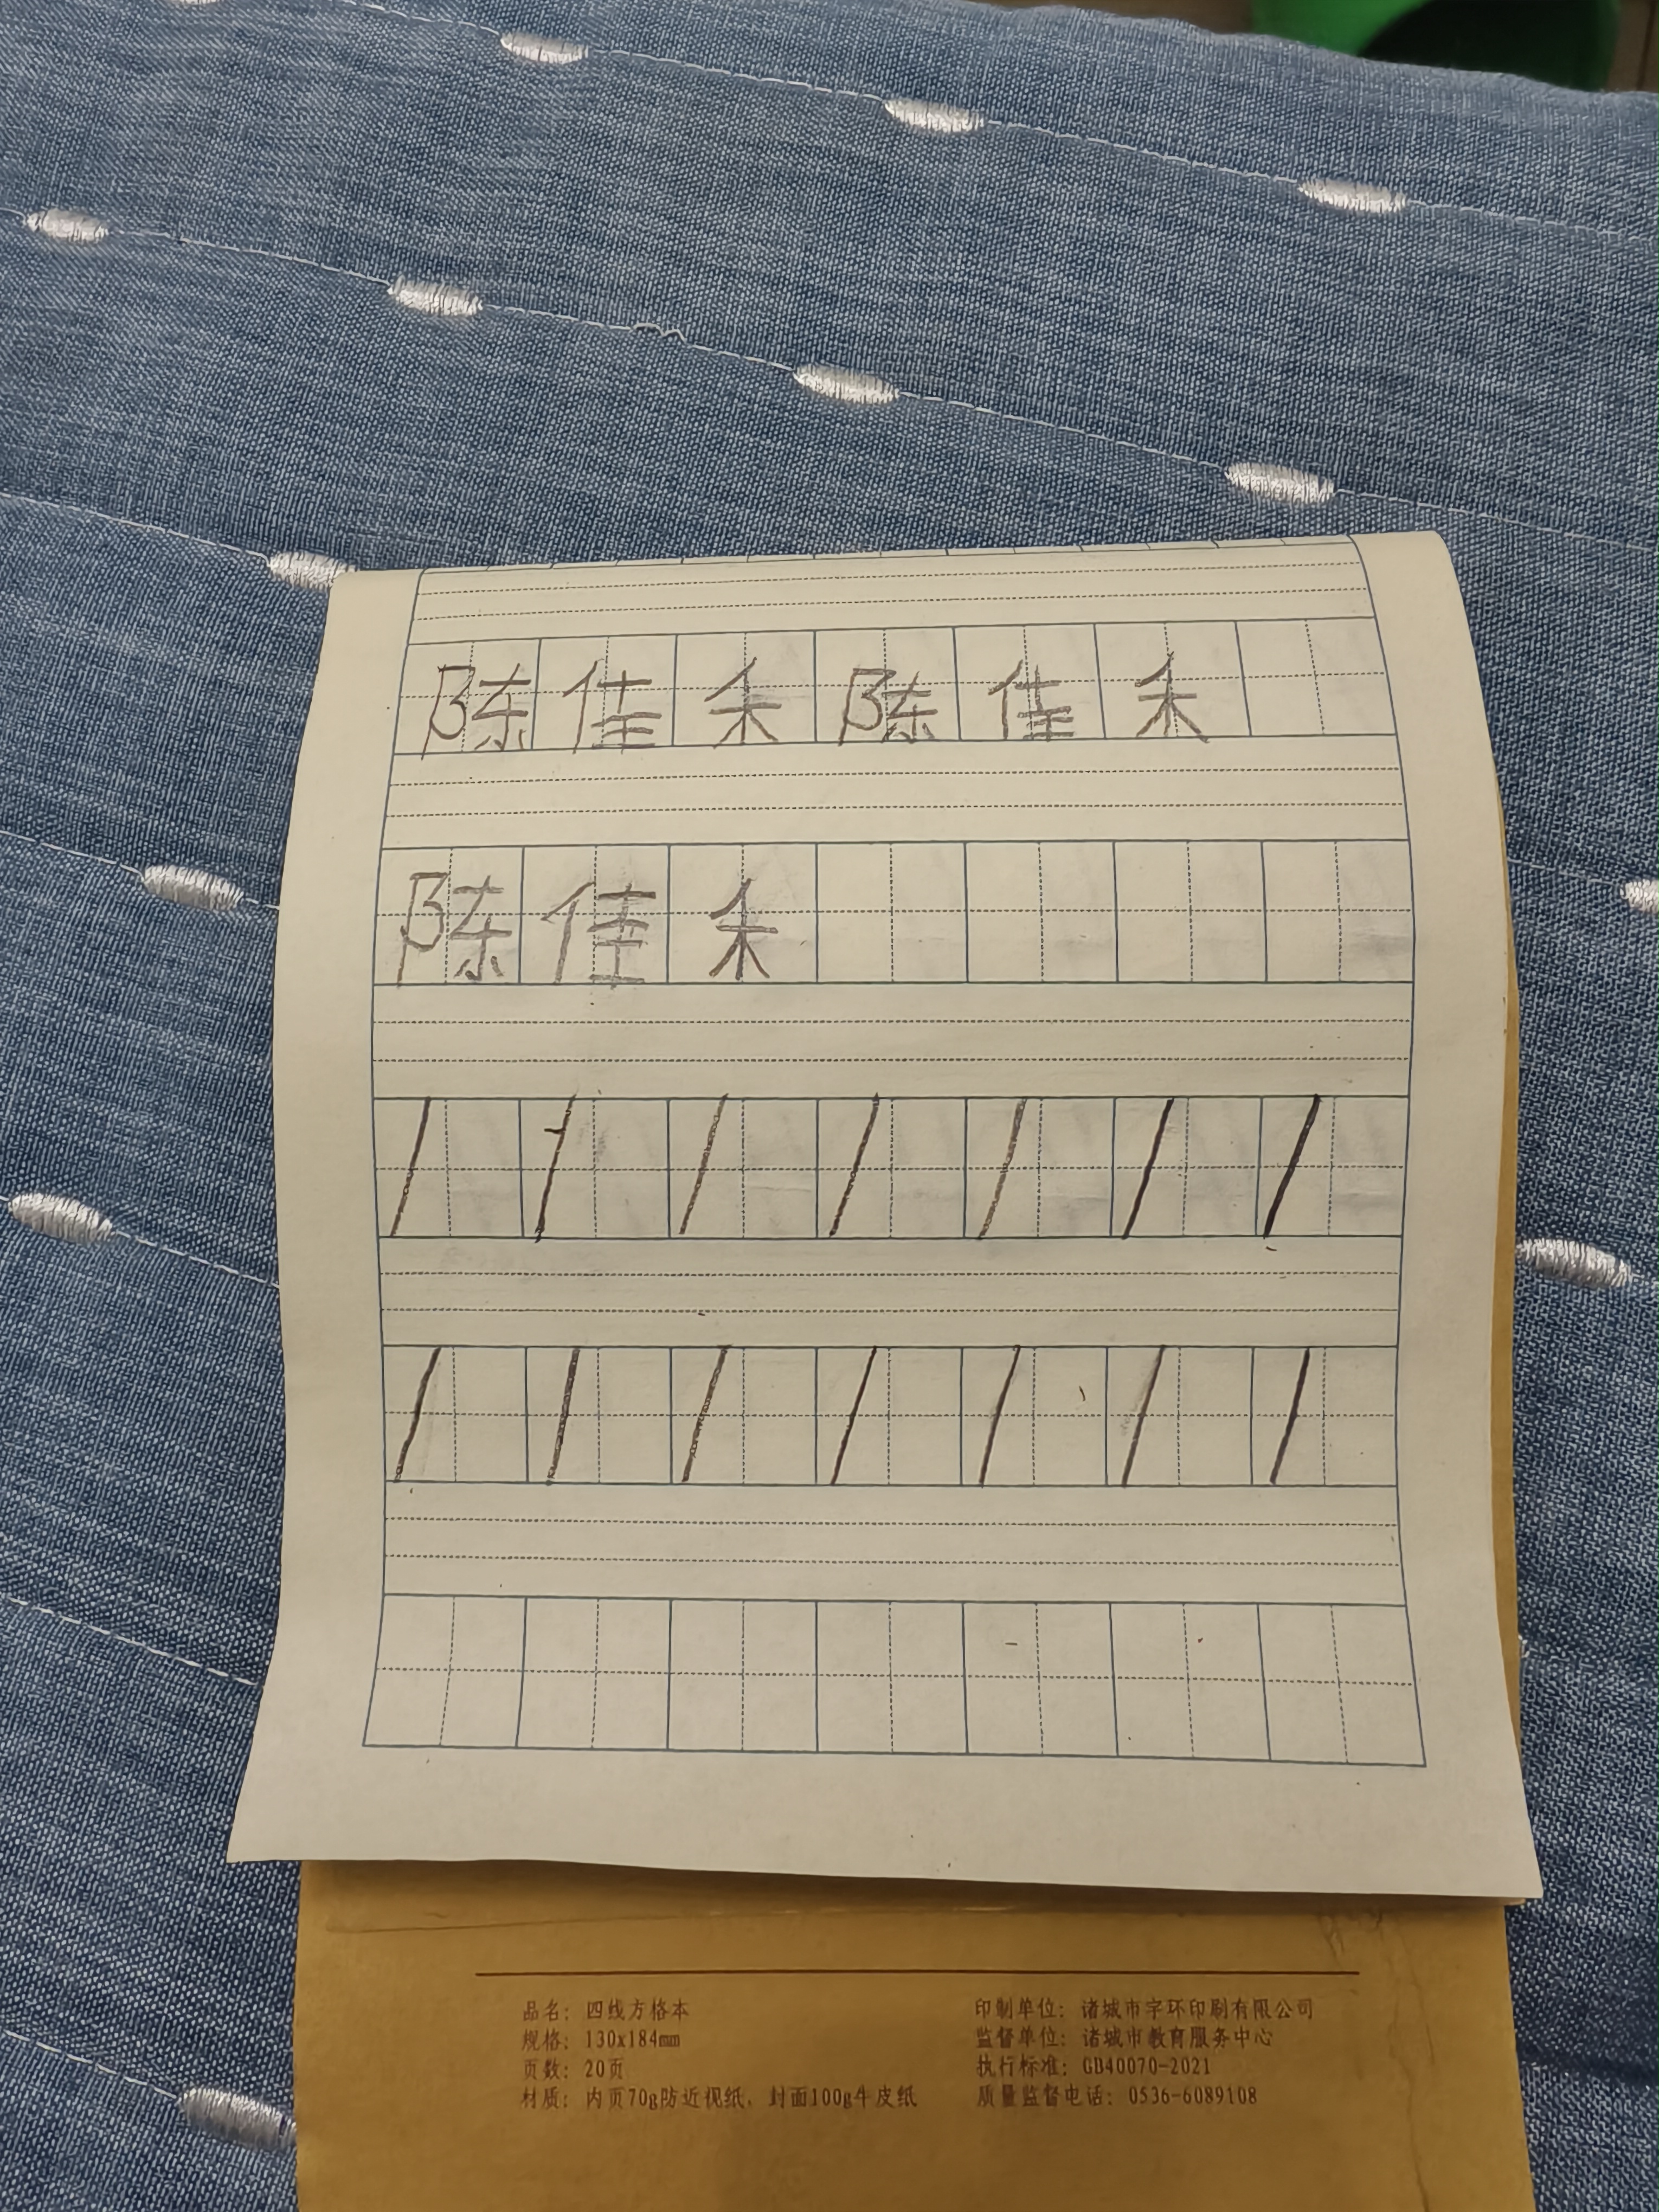 陈佳禾陈佳禾
陈佳禾
1 1 1 1 1 1 1
1 1 1 1 1 1 1
品名：四线方格本
规格：130x184mm
页数：20页
材质：内页70g防近视纸，封面100g牛皮纸
印制单位：诸城市宇环印刷有限公司
监督单位：诸城市教育服务中心
执行标准：GB40070-2021
质量监督电话：0536-6089108